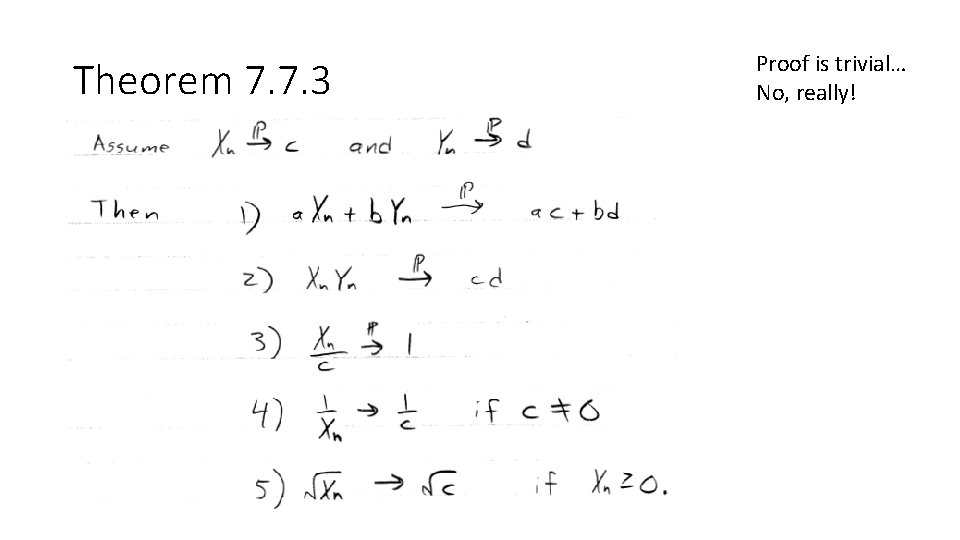 Theorem 7.7.3
Proof is trivial…
No, really!
Assume Xₙ →ᴾ c and Yₙ →ᴾ d
Then 1) a Xₙ + b Yₙ →ᴾ ac + bd
2) Xₙ Yₙ →ᴾ cd
3) Xₙ/c →ᴾ 1
4) 1/Xₙ → 1/c if c ≠ 0
5) √Xₙ → √c if Xₙ ≥ 0.